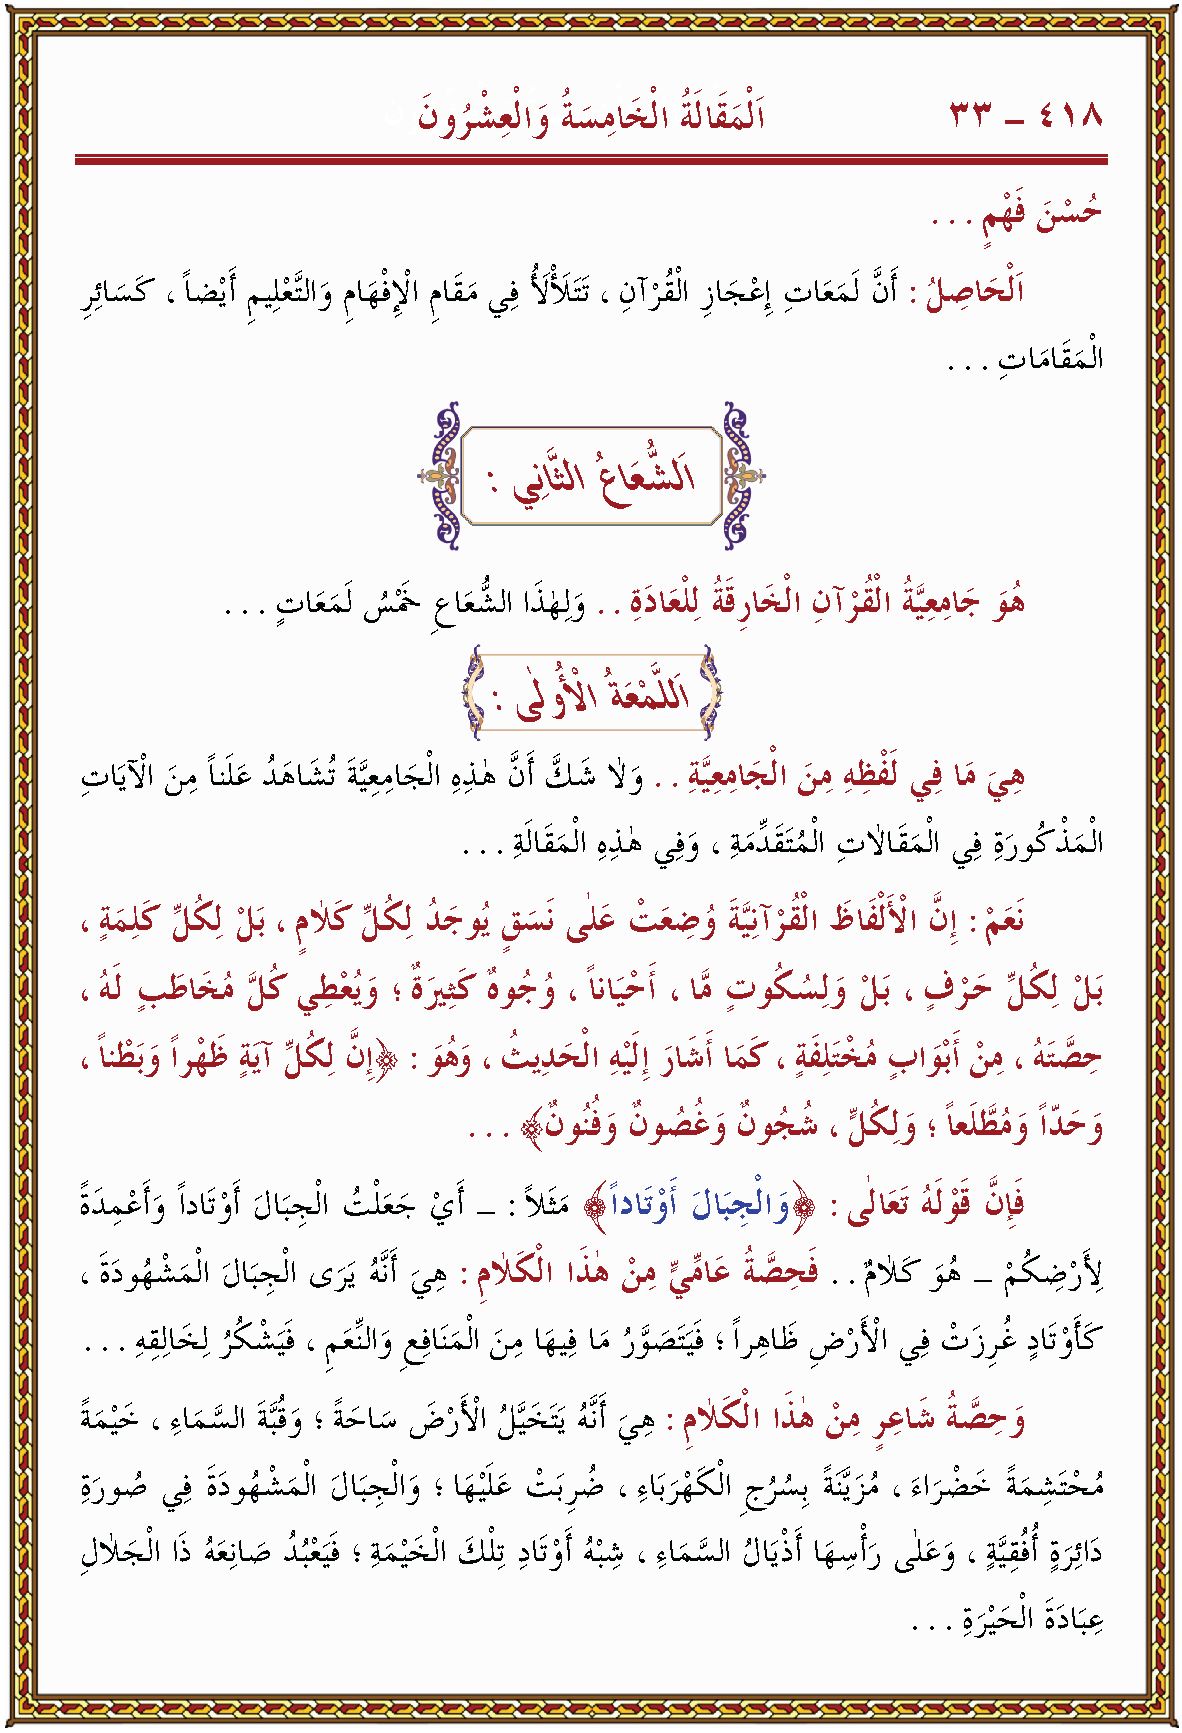 ٤١٨ – ٣٣ اَلْمَقَالَةُ الْخَامِسَةُ وَالْعِشْرُونَ
حُسْنَ فَهْمٍ . . .
اَلْحَاصِلُ : أَنَّ لَمَعَاتِ إِعْجَازِ الْقُرْآنِ ، تَتَلَأْلَأُ فِي مَقَامِ الْإِفْهَامِ وَالتَّعْلِيمِ أَيْضاً ، كَسَائِرِ
الْمَقَامَاتِ . . .
اَلشُّعَاعُ الثَّانِي :
هُوَ جَامِعِيَّةُ الْقُرْآنِ الْخَارِقَةُ لِلْعَادَةِ . . وَلِهٰذَا الشُّعَاعِ خَمْسُ لَمَعَاتٍ . . .
اَللَّمْعَةُ الْأُولٰى :
هِيَ مَا فِي لَفْظِهِ مِنَ الْجَامِعِيَّةِ . . وَلاٰ شَكَّ أَنَّ هٰذِهِ الْجَامِعِيَّةَ تُشَاهَدُ عَلَناً مِنَ الْآيَاتِ
الْمَذْكُورَةِ فِي الْمَقَالاٰتِ الْمُتَقَدِّمَةِ ، وَفِي هٰذِهِ الْمَقَالَةِ . . .
نَعَمْ : إِنَّ الْأَلْفَاظَ الْقُرْآنِيَّةَ وُضِعَتْ عَلٰى نَسَقٍ يُوجَدُ لِكُلِّ كَلاٰمٍ ، بَلْ لِكُلِّ كَلِمَةٍ ،
بَلْ لِكُلِّ حَرْفٍ ، بَلْ وَلِسُكُوتٍ مَّا ، أَحْيَاناً ، وُجُوهٌ كَثِيرَةٌ ؛ وَيُعْطِي كُلَّ مُخَاطَبٍ لَهُ ،
حِصَّتَهُ ، مِنْ أَبْوَابٍ مُخْتَلِفَةٍ ، كَمَا أَشَارَ إِلَيْهِ الْحَدِيثُ ، وَهُوَ : ﴿إِنَّ لِكُلِّ آيَةٍ ظَهْراً وَبَطْناً ،
وَحَدّاً وَمُطَّلَعاً ؛ وَلِكُلٍّ ، شُجُونٌ وَغُصُونٌ وَفُنُونٌ﴾ . . .
فَإِنَّ قَوْلَهُ تَعَالٰى : ﴿وَالْجِبَالَ أَوْتَاداً﴾ مَثَلاً : – أَيْ جَعَلْتُ الْجِبَالَ أَوْتَاداً وَأَعْمِدَةً
لِأَرْضِكُمْ – هُوَ كَلاٰمٌ . . فَحِصَّةُ عَامِّيٍّ مِنْ هٰذَا الْكَلاٰمِ : هِيَ أَنَّهُ يَرَى الْجِبَالَ الْمَشْهُودَةَ ،
كَأَوْتَادٍ غُرِزَتْ فِي الْأَرْضِ ظَاهِراً ؛ فَيَتَصَوَّرُ مَا فِيهَا مِنَ الْمَنَافِعِ وَالنِّعَمِ ، فَيَشْكُرُ لِخَالِقِهِ . . .
وَحِصَّةُ شَاعِرٍ مِنْ هٰذَا الْكَلاٰمِ : هِيَ أَنَّهُ يَتَخَيَّلُ الْأَرْضَ سَاحَةً ؛ وَقُبَّةَ السَّمَاءِ ، خَيْمَةً
مُحْتَشِمَةً خَضْرَاءَ ، مُزَيَّنَةً بِسُرُجِ الْكَهْرَبَاءِ ، ضُرِبَتْ عَلَيْهَا ؛ وَالْجِبَالَ الْمَشْهُودَةَ فِي صُورَةِ
دَائِرَةٍ أُفُقِيَّةٍ ، وَعَلٰى رَأْسِهَا أَذْيَالُ السَّمَاءِ ، شِبْهُ أَوْتَادِ تِلْكَ الْخَيْمَةِ ؛ فَيَعْبُدُ صَانِعَهُ ذَا الْجَلاٰلِ
عِبَادَةَ الْحَيْرَةِ . . .